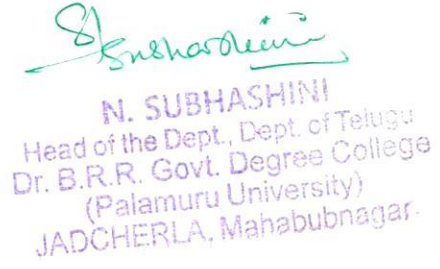 Subhashini
N. SUBHASHINI
Head of the Dept., Dept. of Telugu
Dr. B.R.R. Govt. Degree College
(Palamuru University)
JADCHERLA, Mahabubnagar.